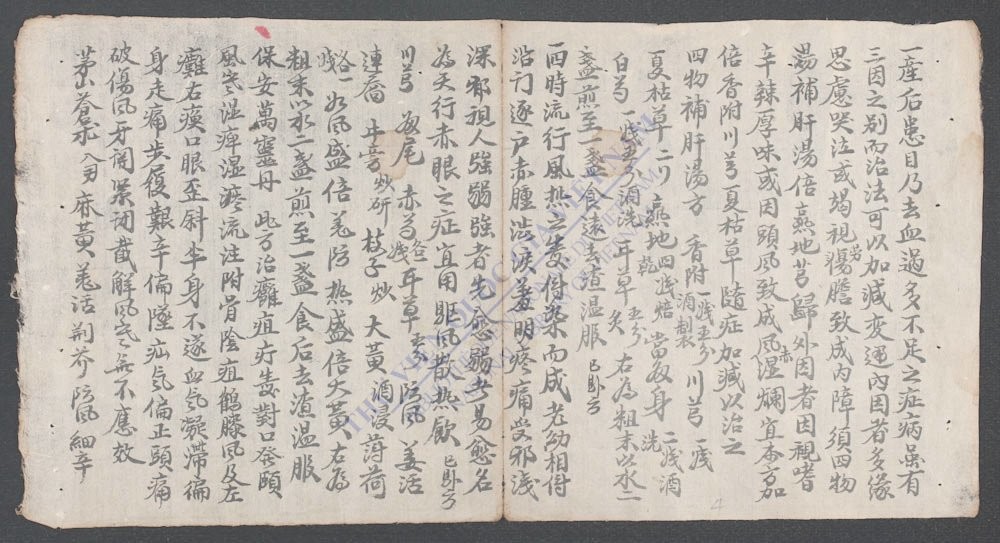 一產后患目乃去血過多不足之症病虽有
三因之别而治法可以加減变運內因者多緣
思慮哭泣或竭視劳傷膽致成內障須四物
湯補肝湯倍熹地芎歸外因者因視嗜
辛辣厚味或因頭风致成风湿赤爛宜本方加
倍香附川芎夏枯草随症加減以治之
四物補肝湯方 香附一戋五分酒製 川芎一戋
夏枯草二刀 熹地四戋焙乾 當敀身二戋酒洗
白芍一戋五分酒洗 甘草五分炙 右為粗末以水二
盞煎至一盞食遠去渣温服 已卧方
一四時流行風热之毒傳染而成老幼相傳
沿门逐户赤腫澁淚羞明疼痛受邪淺
深邪祖人強弱強者先愈弱者易愈名
為天行赤眼之症宜用駆风散热飲 已卧方
川芎 敀尾 赤芍各戋 甘草五分 防风 羌活
連喬 牛旁炒研 枝子炒 大黃酒浸 薄荷
各一戋 如风盛倍羌防热盛倍大黃右為
粗末以水二盞煎至一盞食后去渣温服
保安萬靈丹 此方治癰疽疔毒對口發頤
風寒湿痺湿痰流注附骨陰疽鶴膝风及左
癱右瘓口眼歪斜半身不遂血气凝滞徧
身走痛步履艱辛偏墜疝气偏正頭痛
破傷风牙関緊闭截解风寒無不應效
茅山蒼朮八刄 麻黃 羌活 荆芥 防风 細辛
THƯ VIỆN QUỐC GIA VIỆT NAM
NATIONAL LIBRARY OF VIETNAM
4